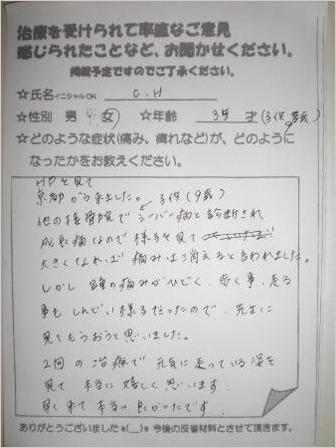 治療を受けられて率直なご意見
感じられたことなど、お聞かせください。
掲載予定ですのでご了承ください。
☆氏名 イニシャルOK C.H
☆性別 男 女 ☆年齢 35 才(子供 9歳)
☆どのような症状(痛み、痺れなど)が、どのように
なったかをお教えください。
HPを見て
京都から来ました。子供(9歳)
他の接骨院でシーバー病と診断され
成長痛なので様子を見て
大きくなれば痛みは消えると言われました。
しかし踵の痛みがひどく、歩く事、走る
事もしんどい様子だったので、先生に
見てもらおうと思いました。
2回の治療で元気に走っている姿を
見て本当に嬉しく思います。
見て来て本当に良かったです。
ありがとうございました m(__)m 今後の反省材料とさせて頂きます。